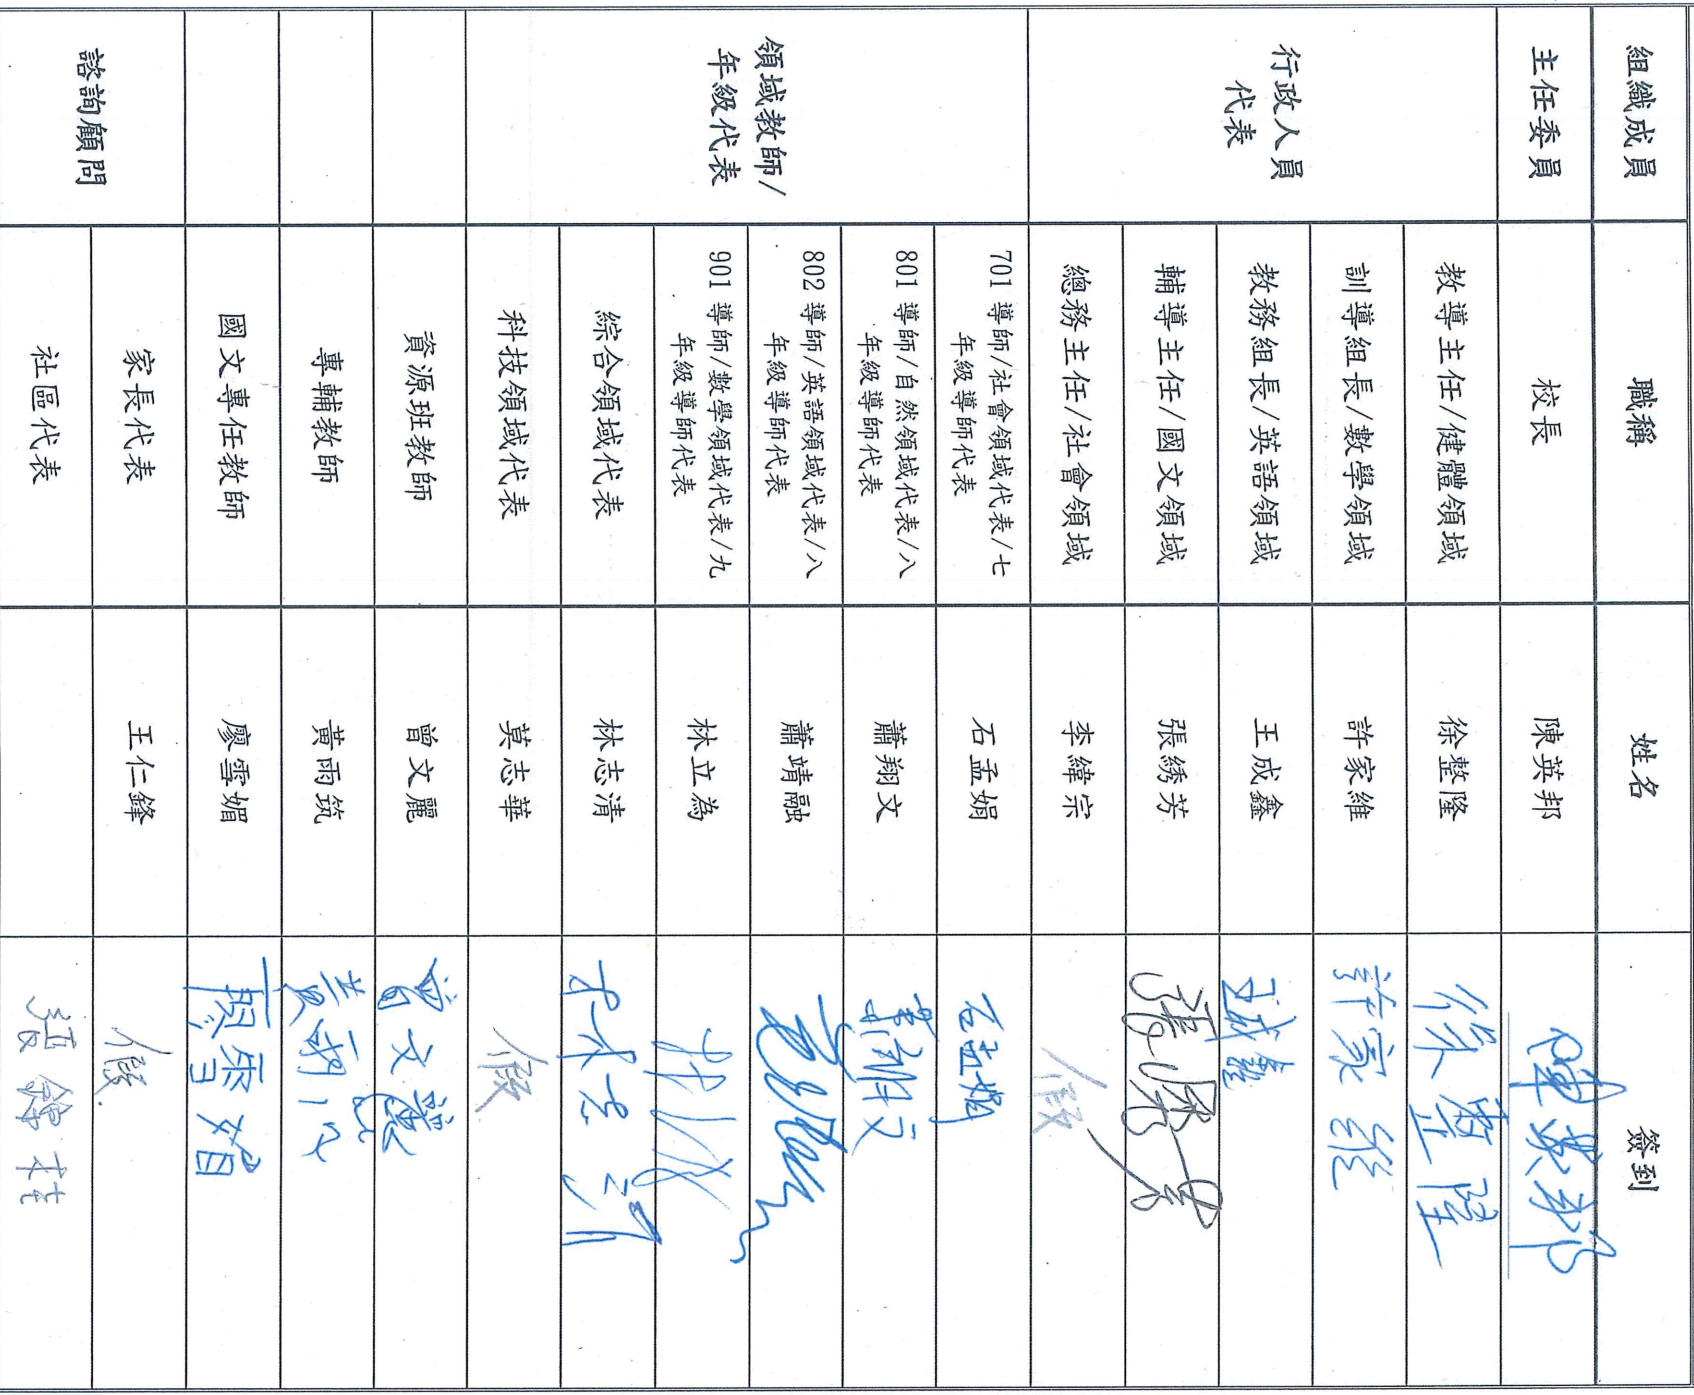 組織成員 職稱 姓名 簽到
主任委員 校長 陳英邦 陳英邦
行政人員
代表
教導主任/健體領域 徐整隆 徐整隆
訓導組長/數學領域 許家維 許家維
教務組長/英語領域 王成鑫 王成鑫
輔導主任/國文領域 張綉芳
總務主任/社會領域 李緯宗 假
領域教師/
年級代表
701 導師/社會領域代表/七
年級導師代表 石孟娟 石孟娟
801 導師/自然領域代表/八
年級導師代表 蕭翔文 蕭翔文
802 導師/英語領域代表/八
年級導師代表 蕭靖融
901 導師/數學領域代表/九
年級導師代表 林立為
綜合領域代表 林志清 林志清
科技領域代表 莫志華 假
資源班教師 曾文麗 曾文麗
專輔教師 黃雨筑 黃雨筑
國文專任教師 廖雪媚 廖雪媚
諮詢顧問
家長代表 王仁鋒 假
社區代表